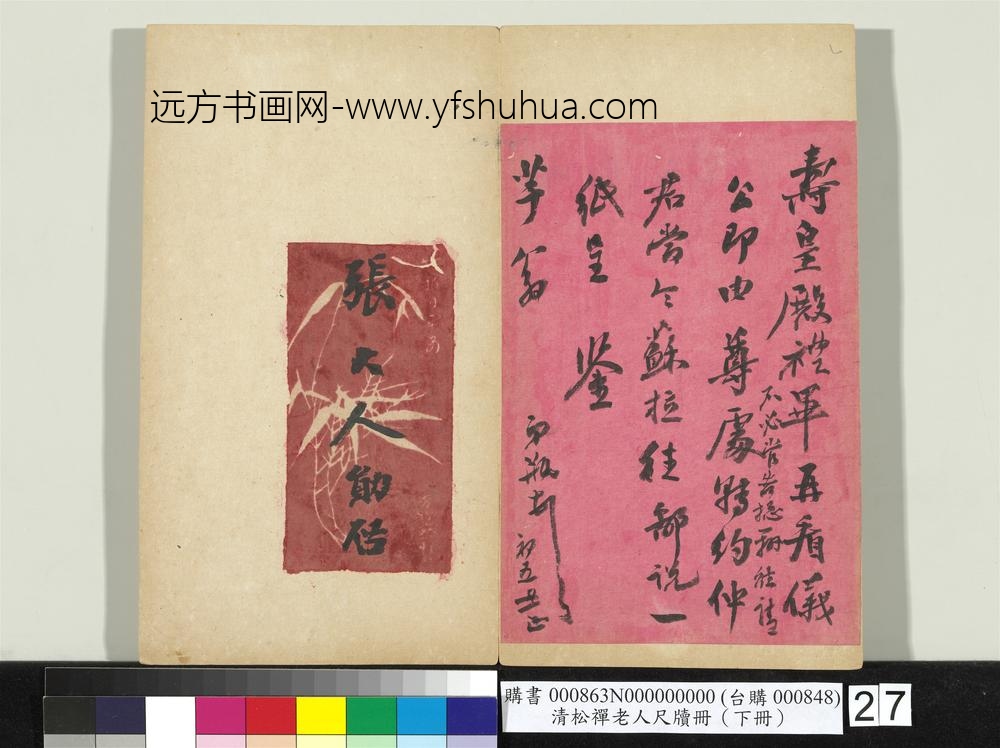 远方书画网-www.yfshuhua.com
壽皇殿禮畢再看儀
公即由尊處轉約仲
不必當告摠
君嘗令蘇拉往部說一
紙呈鉴
翁
初五
張大人勛啓
購書 000863N000000000 (台購 000848)
清松禪老人尺牘冊（下冊）
27